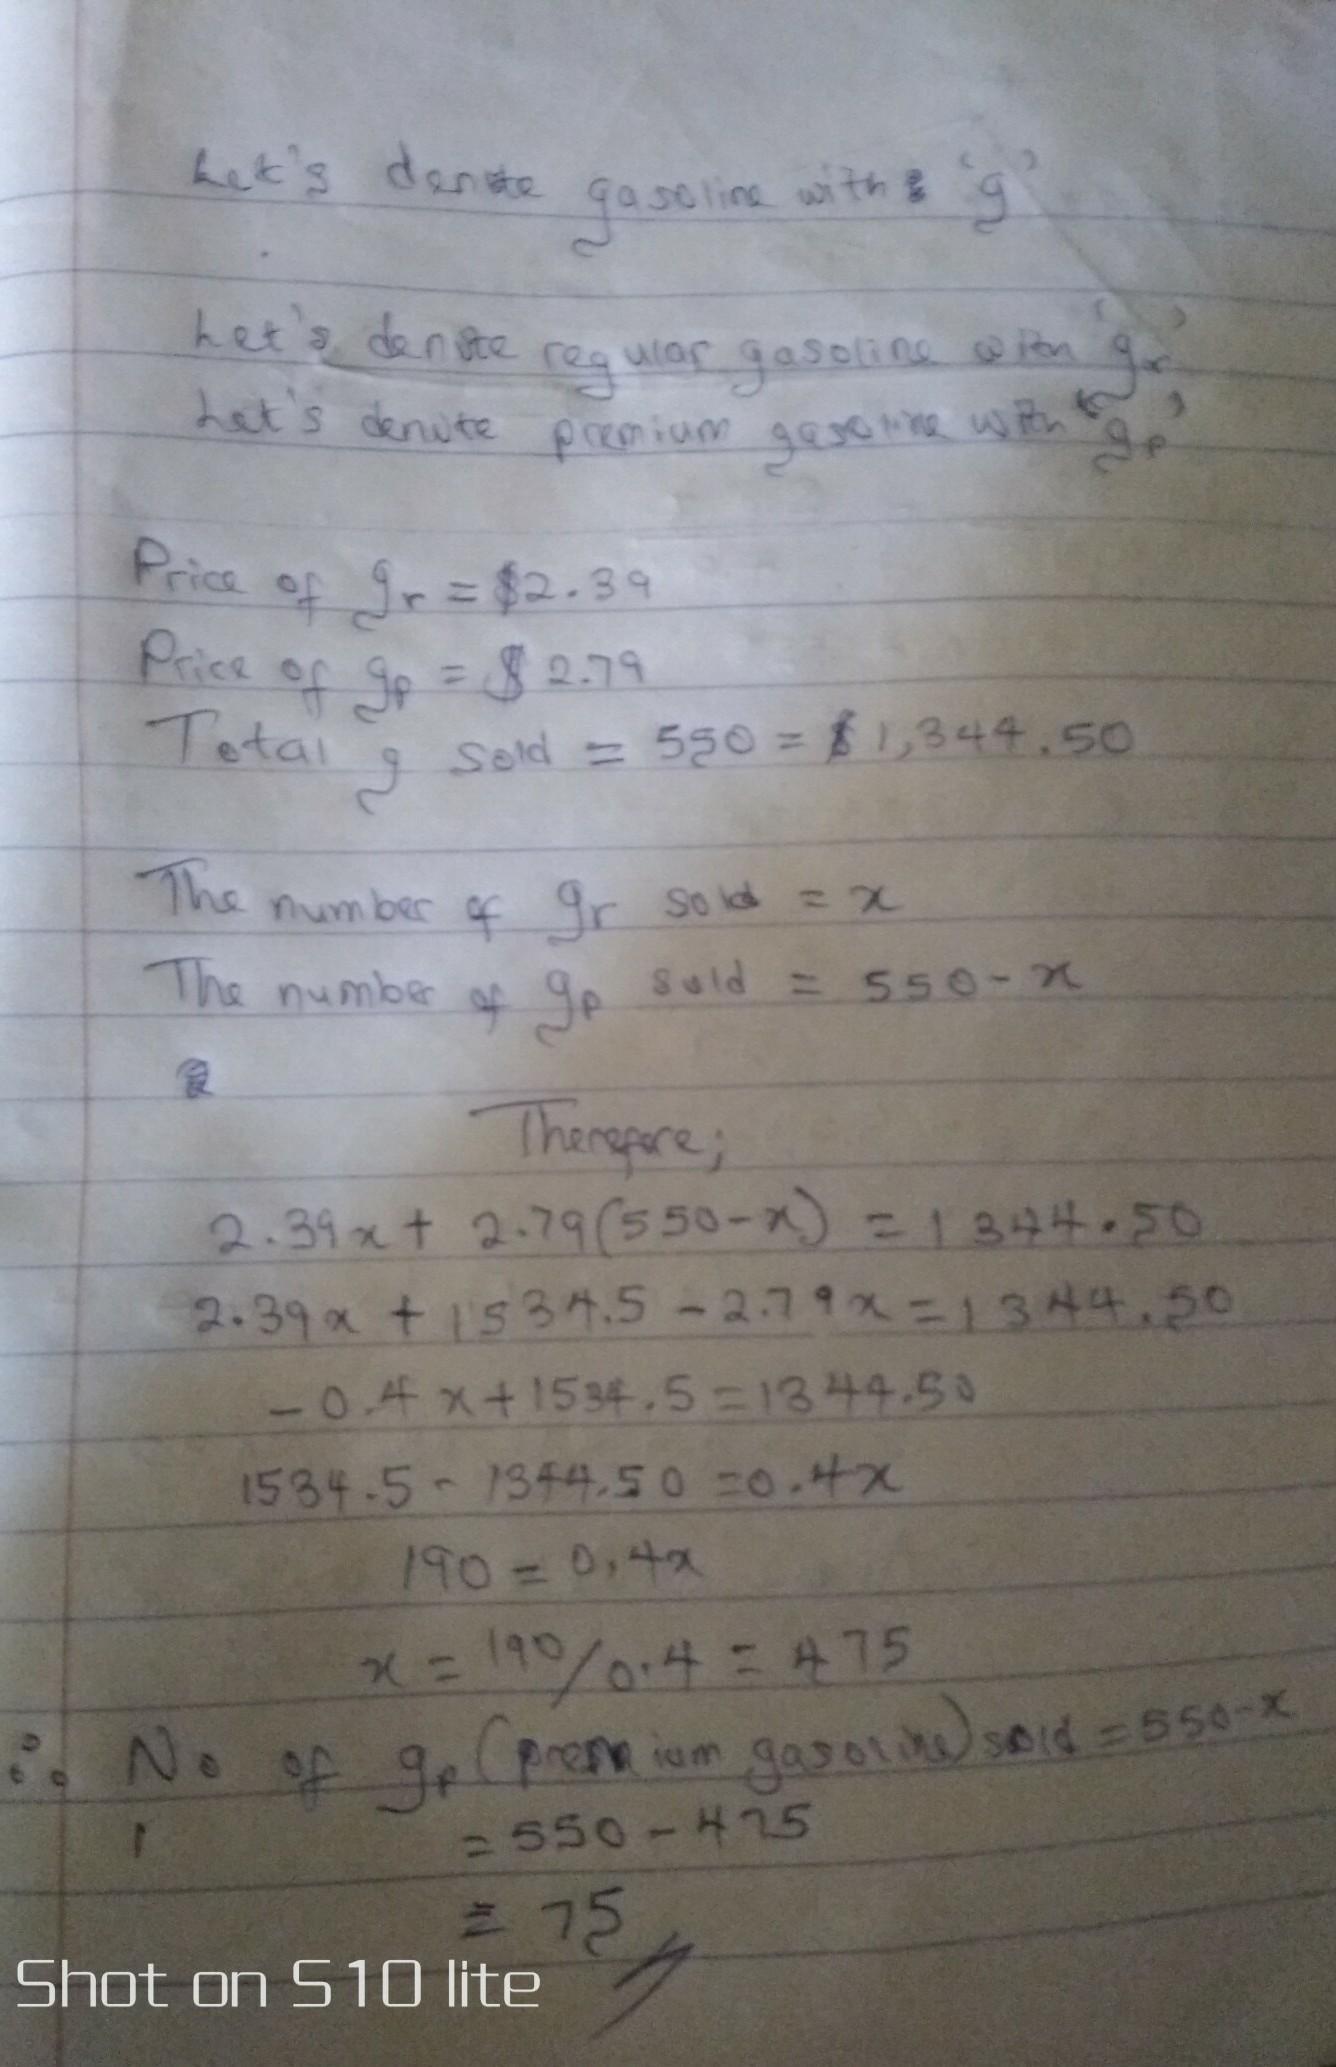 Let's denote gasoline with 'g'
Let's denote regular gasoline with 'gr'
Let's denote premium gasoline with 'gp'
Price of gr = $2.39
Price of gp = $2.79
Total g sold = 550 = $1,344.50
The number of gr sold = x
The number of gp sold = 550 - x
Therefore;
2.39x + 2.79(550-x) = 1344.50
2.39x + 1534.5 - 2.79x = 1344.50
-0.4x + 1534.5 = 1344.50
1534.5 - 1344.50 = 0.4x
190 = 0.4x
x = 190/0.4 = 475
∴ No of gp (premium gasoline) sold = 550-x
= 550 - 475
= 75
Shot on S10 lite